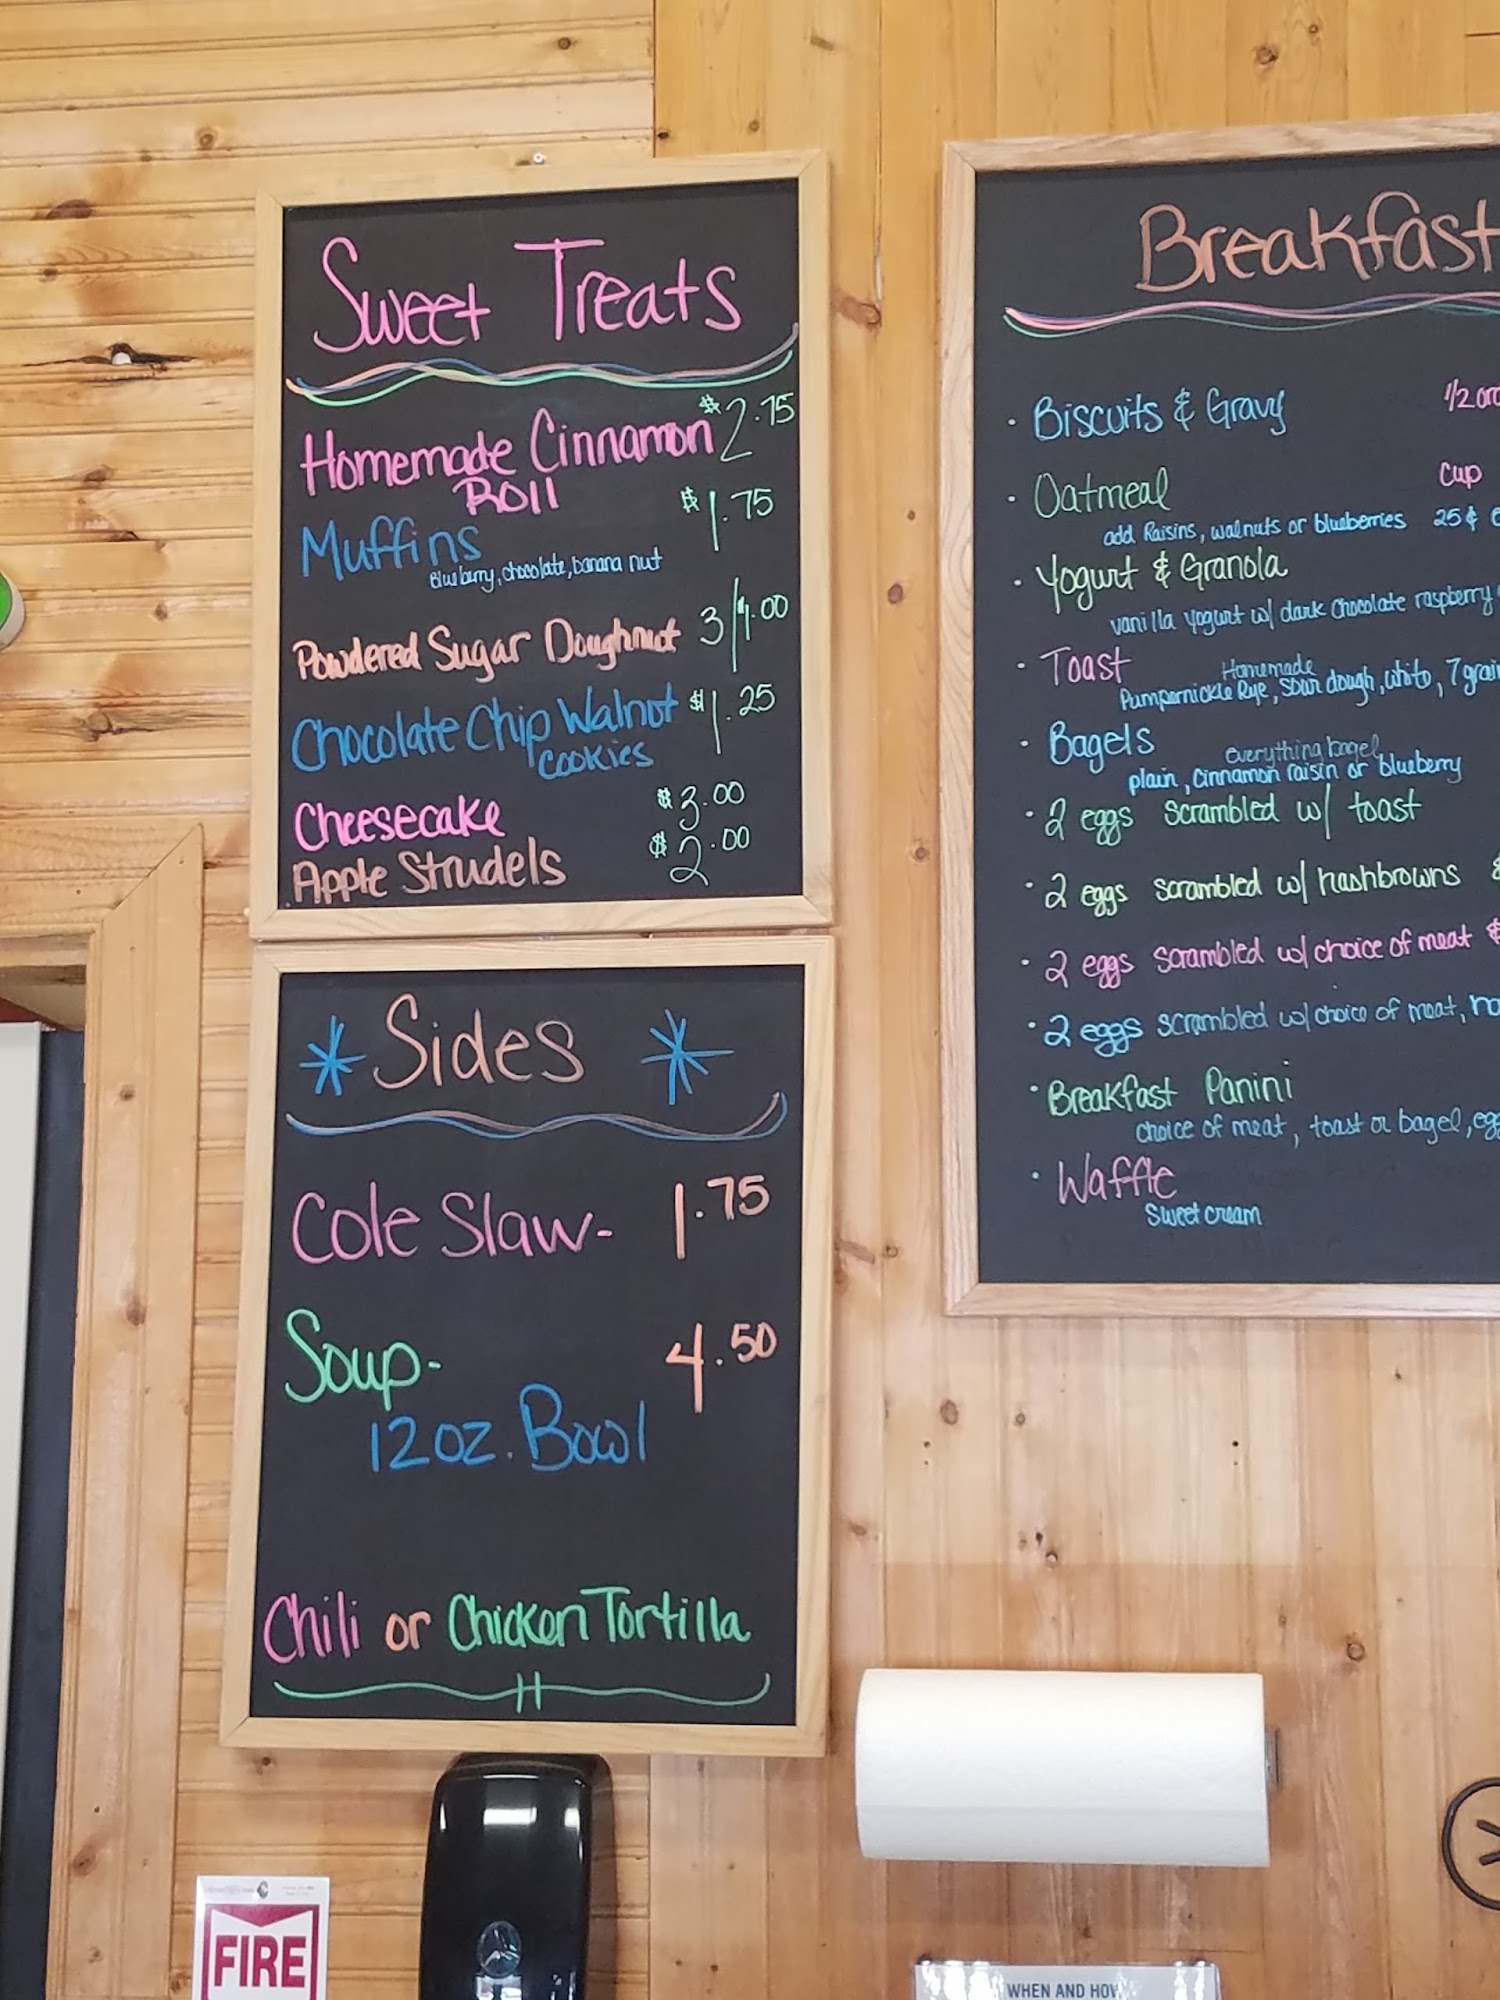 Sweet Treats
Homemade Cinnamon $2.75
Roll
Muffins $1.75
Blueberry, chocolate, banana nut
Powdered Sugar Doughnut 3/$1.00
Chocolate Chip Walnut $1.25
Cookies
Cheesecake $3.00
Apple Strudels $2.00
*Sides *
Cole Slaw- 1.75
Soup- 4.50
12oz. Bowl
Chili or Chicken Tortilla
Breakfast
· Biscuits & Gravy 1/2
· Oatmeal Cup
add Raisins, walnuts or blueberries 25¢
· Yogurt & Granola
vanilla yogurt w/ dark chocolate raspberry
· Toast Homemade
Pumpernickle Rye, sour dough, white, 7 grain
· Bagels everything bagel
plain, cinnamon raisin or blueberry
· 2 eggs scrambled w/ toast
· 2 eggs scrambled w/ hashbrowns
· 2 eggs scrambled w/ choice of meat $
· 2 eggs scrambled w/ choice of meat,
· Breakfast Panini
choice of meat, toast or bagel,
· Waffle
Sweet cream
FIRE
WHEN AND HOW